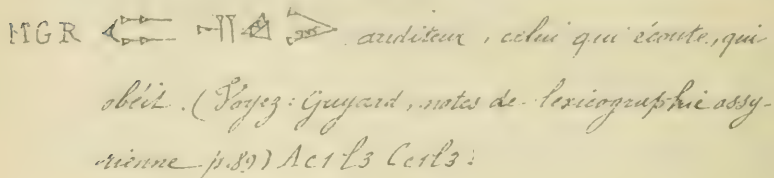 MGR auditeur, celui qui écoute, qui
obéit. (Voyez: Guyard, notes de lexicographie assy-
rienne p. 89) Ac1 l3 Cc1 l3: